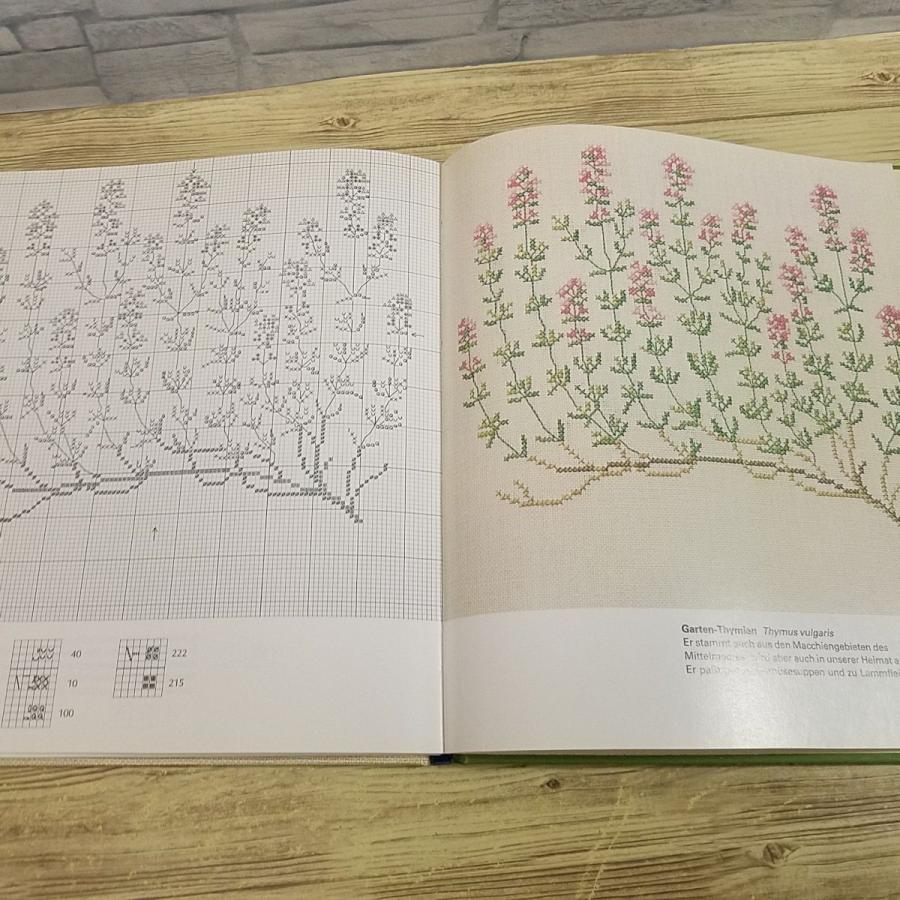 40
10
100
222
215
Garten-Thymian Thymus vulgaris
Er stammt auch aus den Macchiengebieten des
wird aber auch in unserer Heimat
Er zu Lammfle